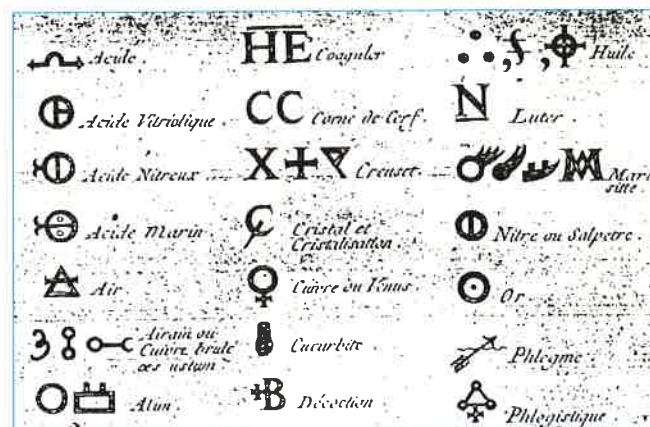 Acide.
Acide Vitriolique.
Acide Nitreux
Acide Marin.
Air
Airain ou
Cuivre brulé
æs ustum
Alun.
HE Coaguler
CC Corne de Cerf.
X Creuset.
Cristal et
Cristalisation.
Cuivre ou Vénus
Cucurbite
B Décoction
Huile.
N Luter.
M Marca
sitte.
Nitre ou Salpetre.
Or
Phlegme
Phlogistique.